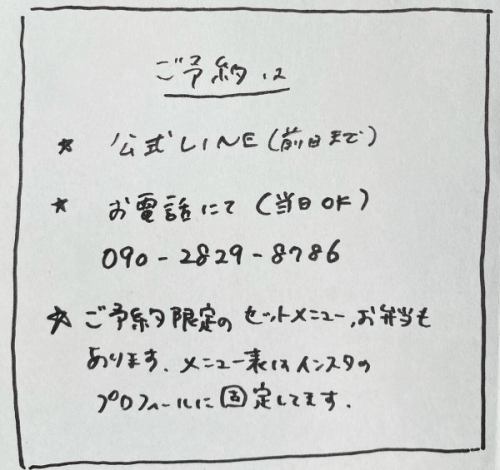 ご予約は
★ 公式LINE(前日まで)
★ お電話にて(当日OK)
090-2829-8786
★ ご予約限定のセットメニュー、お弁当も
あります。メニュー表はインスタの
プロフィールに固定してます.